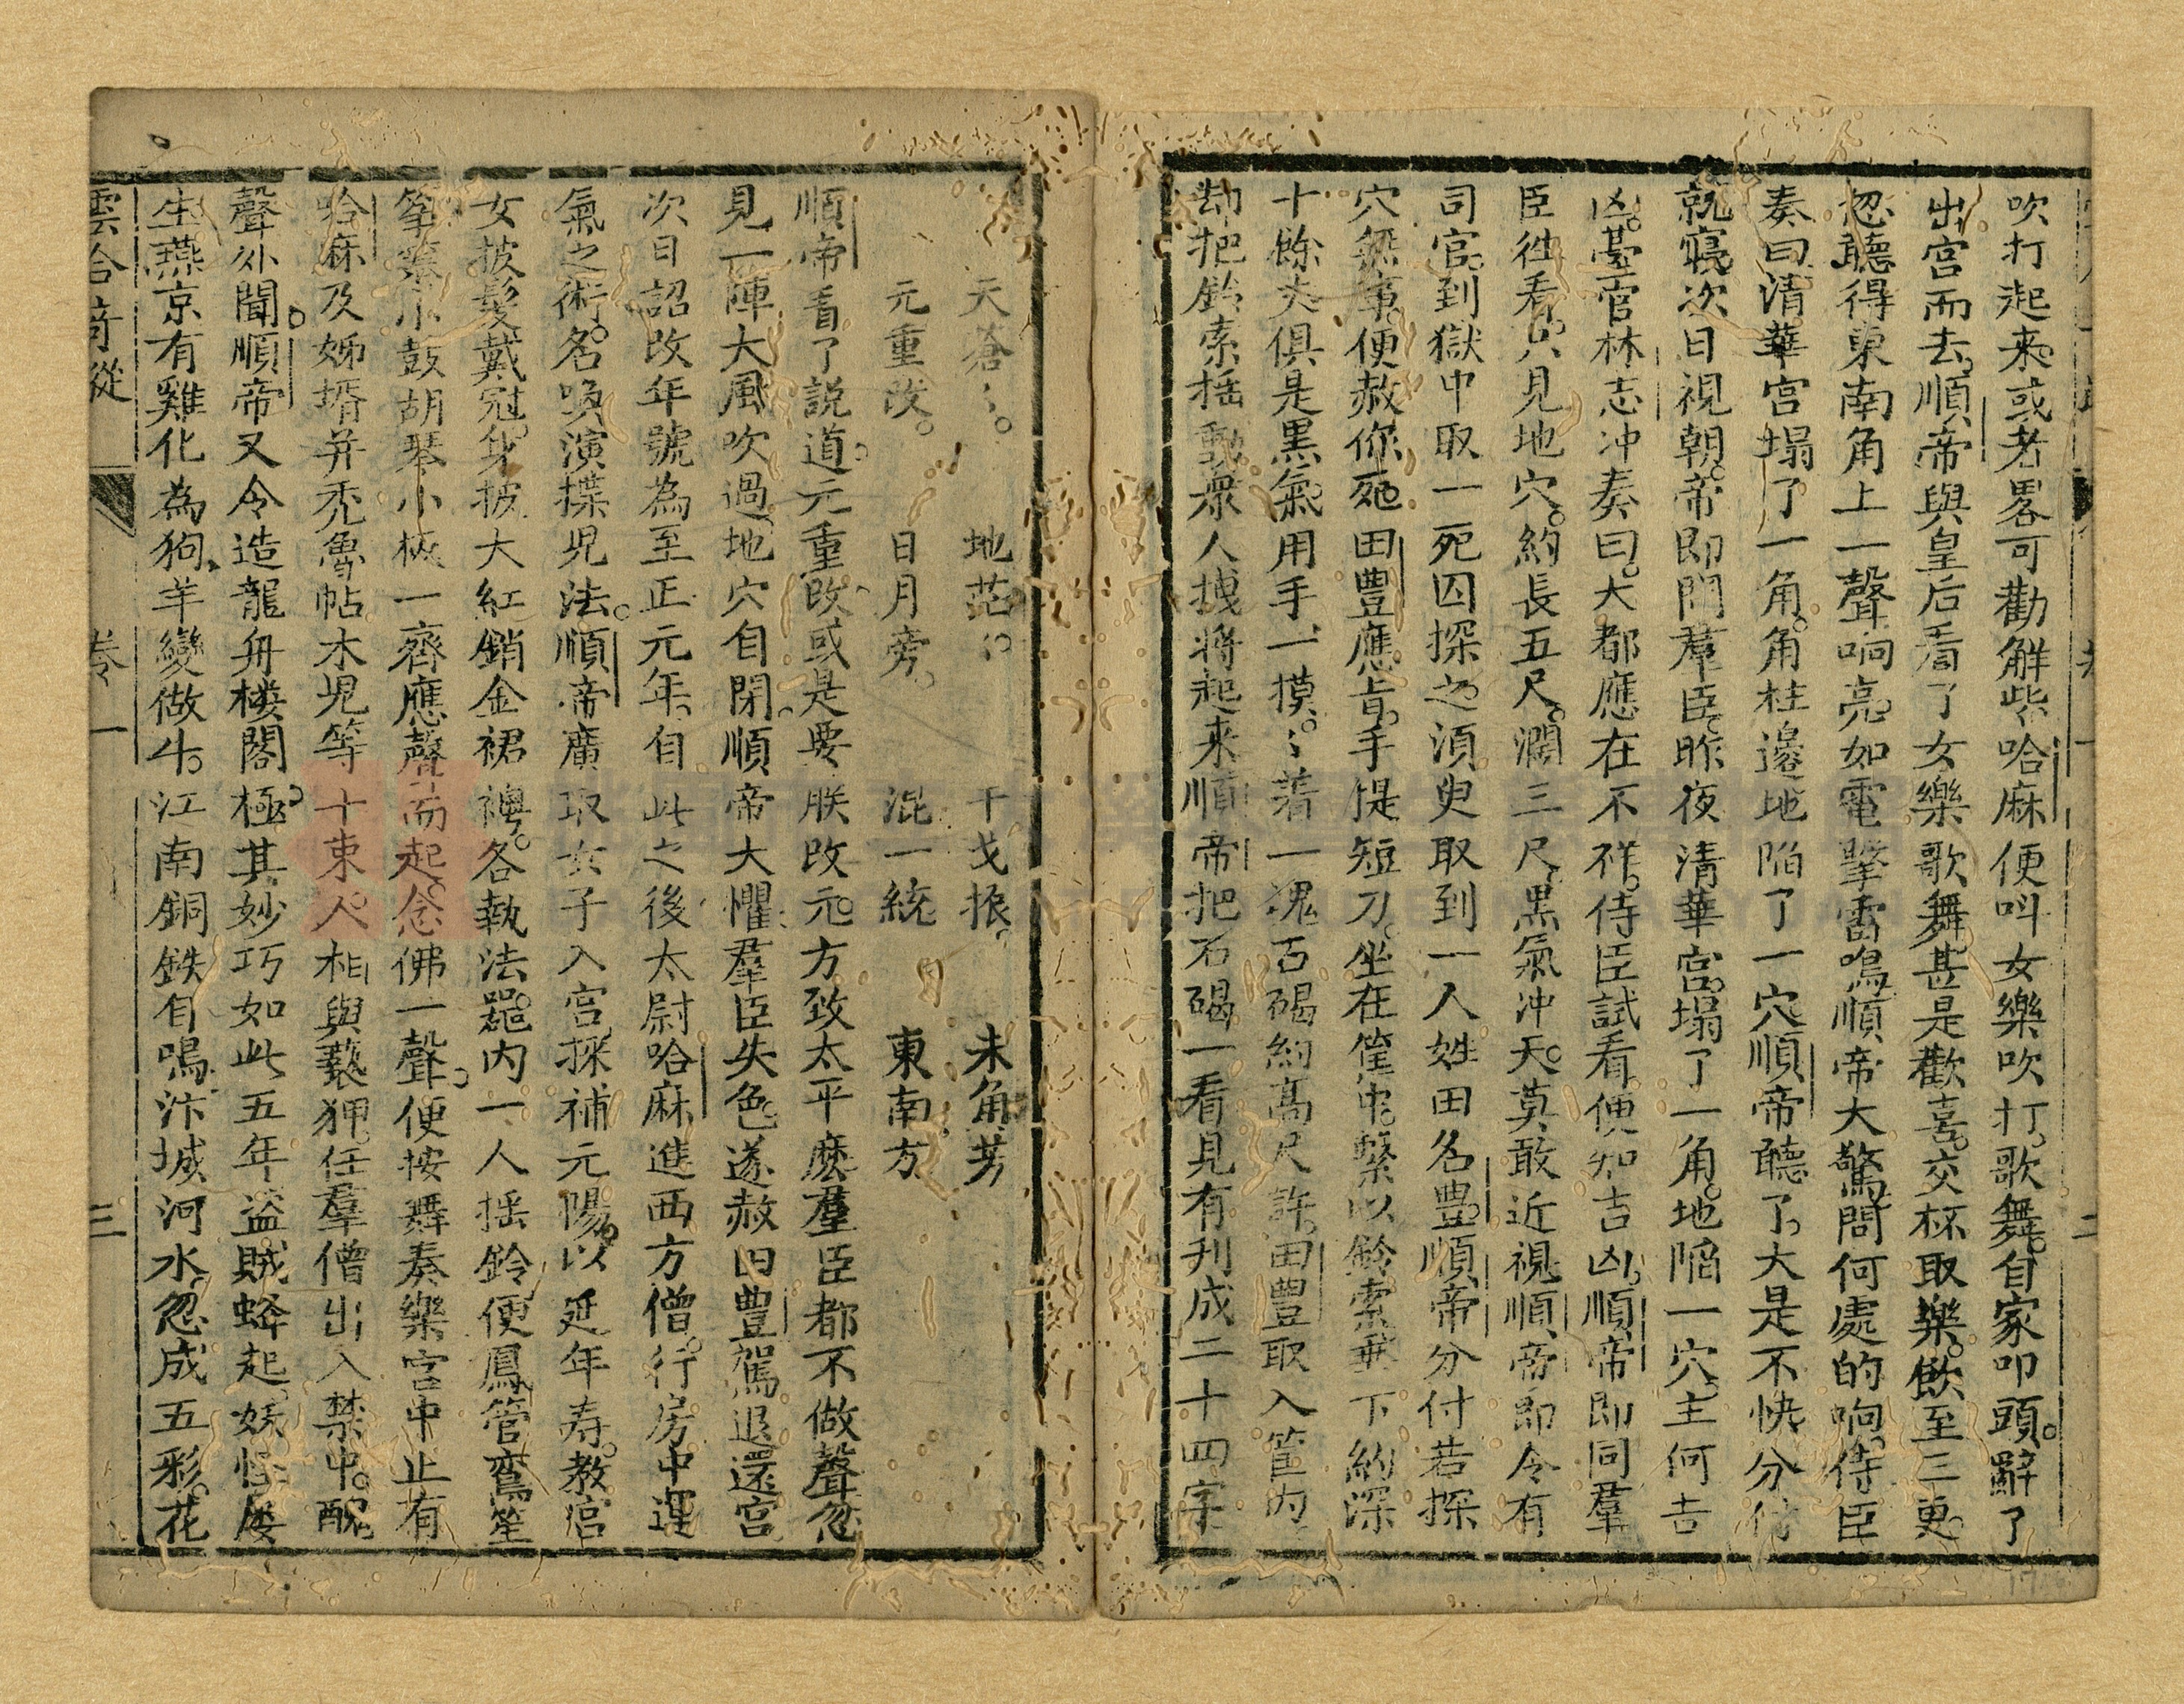 吹打起来或者畧可勸解些哈麻便呌女樂吹打歌舞自家叩頭辭了
出宫而去順帝與皇后看了女樂歌舞甚是歡喜交杯取樂飲至三更
忽聽得東南角上一聲响亮如電掣雷鳴順帝大驚問何處的响侍臣
奏曰清華宫塌了一角角柱邊地陷了一穴順帝聽了大是不快分付
就寢次日視朝帝即問羣臣昨夜清華宫塌了一角地陷一穴主何吉
凶臺官林志冲奏曰大都應在不祥侍臣試看便知吉凶順帝即同羣
臣徃看只見地穴約長五尺濶三尺黑氣冲天莫敢近視順帝即令有
司官到獄中取一死囚探之湏臾取到一人姓田名豊順帝分付若探
穴無事便赦你死田豊應旨手提短刀坐在筐中繫以鈴索乗下約深
十餘丈俱是黒氣用手一摸〻着一塊石碣約高尺許田豊取入筐内
刼把鈴索揺動衆人拽将起来順帝把石碣一看見有刋成二十四字
天蒼〻 地茫〻 干戈振 未角芳
元重改 日月旁 混一統 東南方
順帝看了説道元重改或是要朕改元方致太平麽羣臣都不做聲忽
見一陣大風吹過地穴自閉順帝大懼羣臣失色遂赦田豊駕退還宫
次日詔改年號為至正元年自此之後太尉哈麻進西方僧行房中運
氣之術名喚演揲児法順帝廣取女子入宫採補元陽以延年寿教宫
女披髮戴冠身披大紅銷金裙襖各執法噐内一人揺鈴便鳳管鸞笙
筝𥱧小鼓胡琴小板一齊應聲而起念佛一聲便按舞奏樂宫中止有
哈麻及姊壻并禿魯帖木児等十束人相與褻狎任羣僧出入禁中醜
聲外聞順帝又令造龍舟楼閣極其妙巧如此五年盗賊蜂起妖怪屡
生燕京有雞化為狗羊變做牛江南銅鉄自鳴汴城河水忽成五彩花
雲合竒蹤 卷一 三